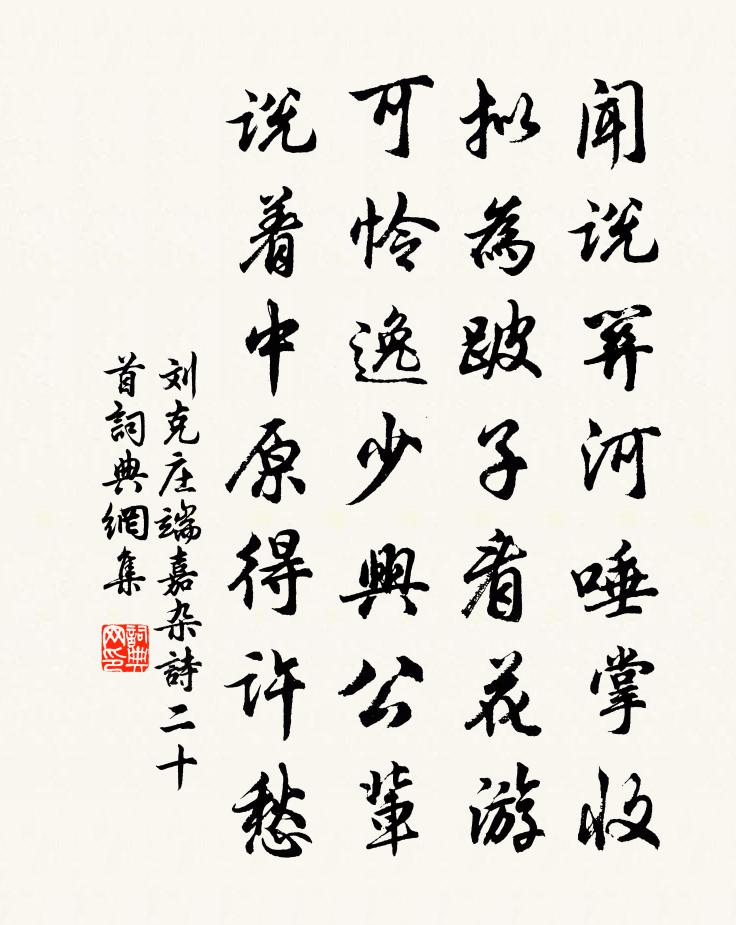 闻说關河唾掌收
拟為跛子看花游
可怜逸少興公輩
说着中原得许愁
刘克庄端嘉杂詩二十
首詞典網集
詞典網印